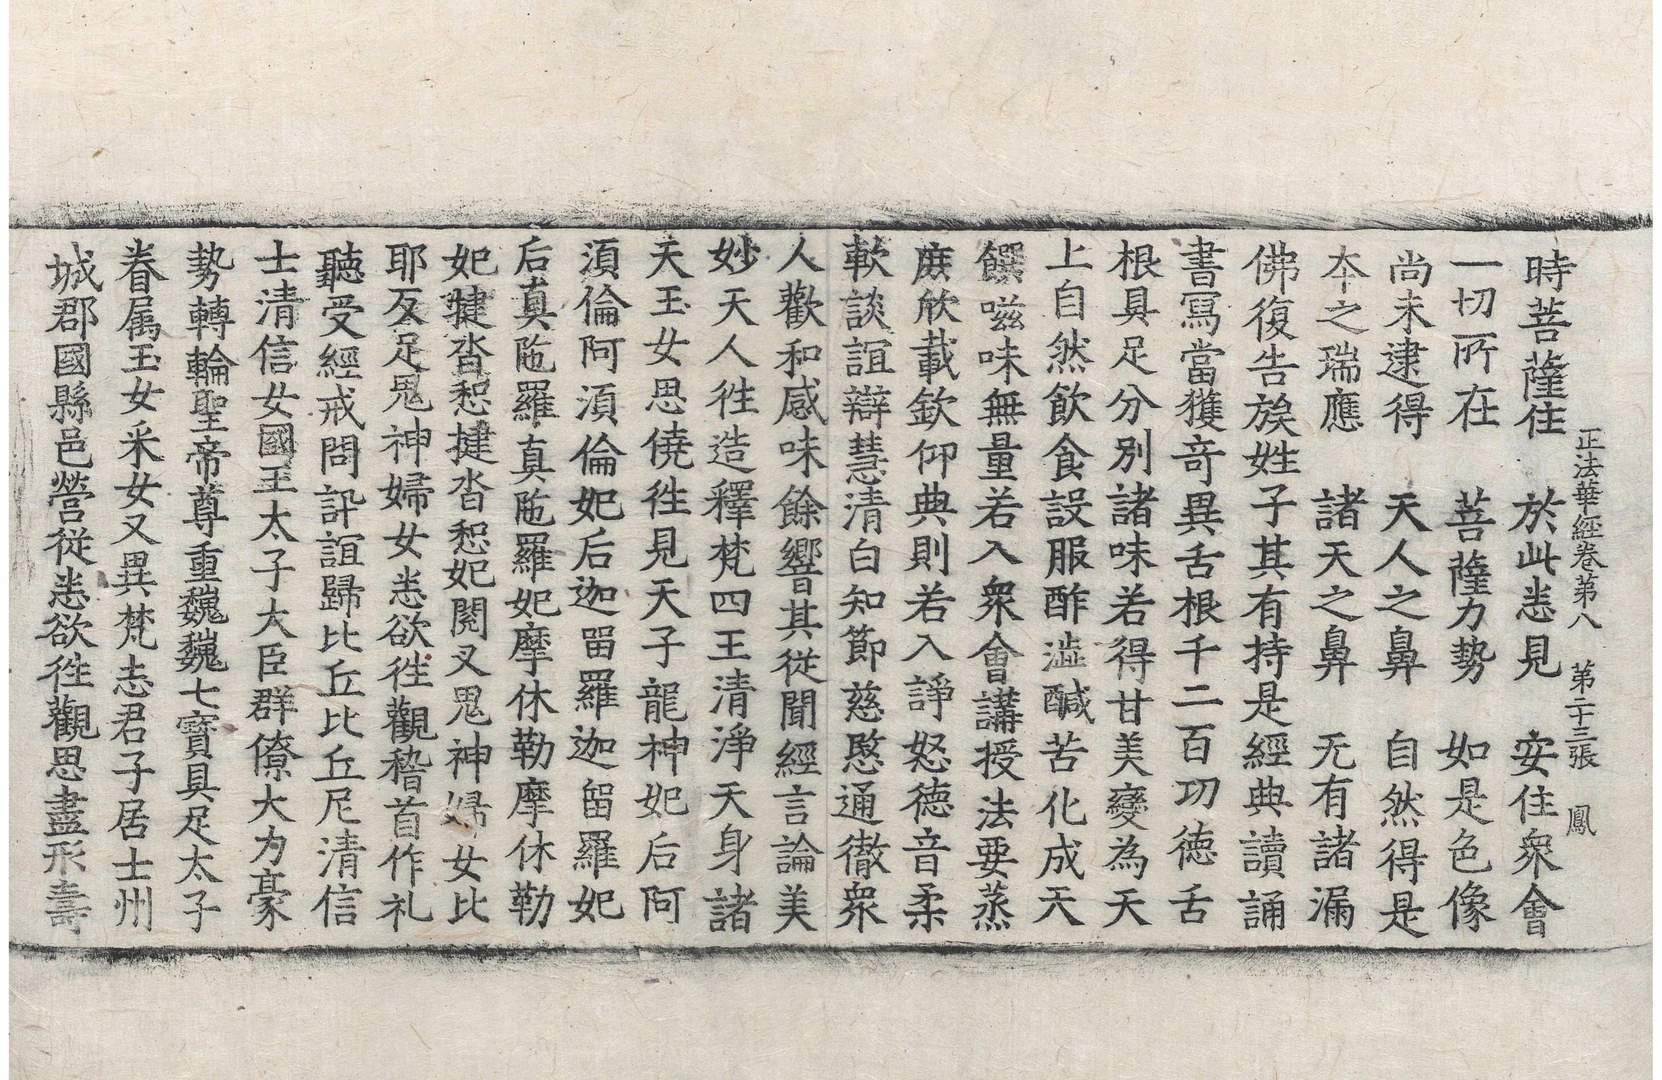 正法華經卷第八 第二十三張 鳳
時菩薩住 於此悉見 安住衆會
一切所在 菩薩力勢 如是色像
尚未逮得 天人之鼻 自然得是
夲之瑞應 諸天之鼻 无有諸漏
佛復告族姓子其有持是經典讀誦
書寫當獲奇異舌根千二百功德舌
根具足分別諸味若得甘美變為天
上自然飲食設服酢澁醎苦化成天
饌嗞味無量若入衆會講授法要蒸
庶欣載欽仰典則若入諍怒德音柔
軟談誼辯慧清白知節慈愍通徹衆
人歡和感味餘響其從聞經言論美
妙天人徃造釋梵四王清淨天身諸
天玉女思僥徃見天子龍神妃后阿
湏倫阿湏倫妃后迦留羅迦留羅妃
后真陁羅真陁羅妃摩休勒摩休勒
妃揵沓惒揵沓惒妃閱叉鬼神婦女比
耶反足鬼神婦女悉欲徃觀稽首作礼
聽受經戒問訊誼歸比丘比丘尼清信
士清信女國王太子大臣群僚大力豪
勢轉輪聖帝尊重巍巍七寶具足太子
眷属玉女采女又異梵志君子居士州
城郡國縣邑營從悉欲徃觀思盡形壽